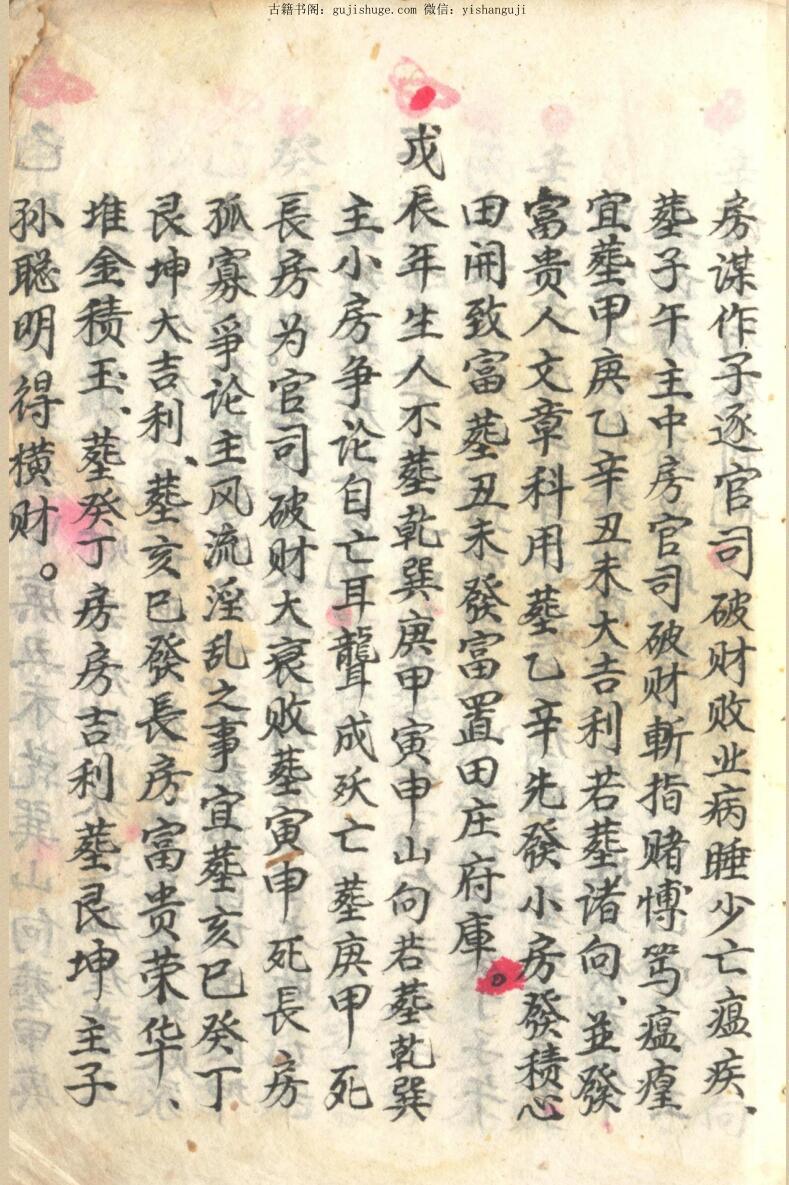 古籍书阁：gujishuge.com 微信：yishanguji
房谋作子逐官司破财败业病睡少亡瘟疾、
塟子午主中房官司破财斬指赌愽笃瘟瘽
宜塟甲庚乙辛丑未大吉利若塟诸向、並發
富贵人文章科用塟乙辛先發小房發積心
田開致富塟丑未發富置田庄府庫。
戊辰年生人不塟乾巽庚甲寅申山向若塟乾巽
主小房争论自亡耳聾成殀亡塟庚甲死
長房为官司破财大衰败塟寅申死長房
孤寡爭论主风流淫乱之事宜塟亥巳癸丁
艮坤大吉利、塟亥巳發長房富贵荣华、
堆金積玉、塟癸丁房房吉利塟艮坤主子
孙聪明得横财。